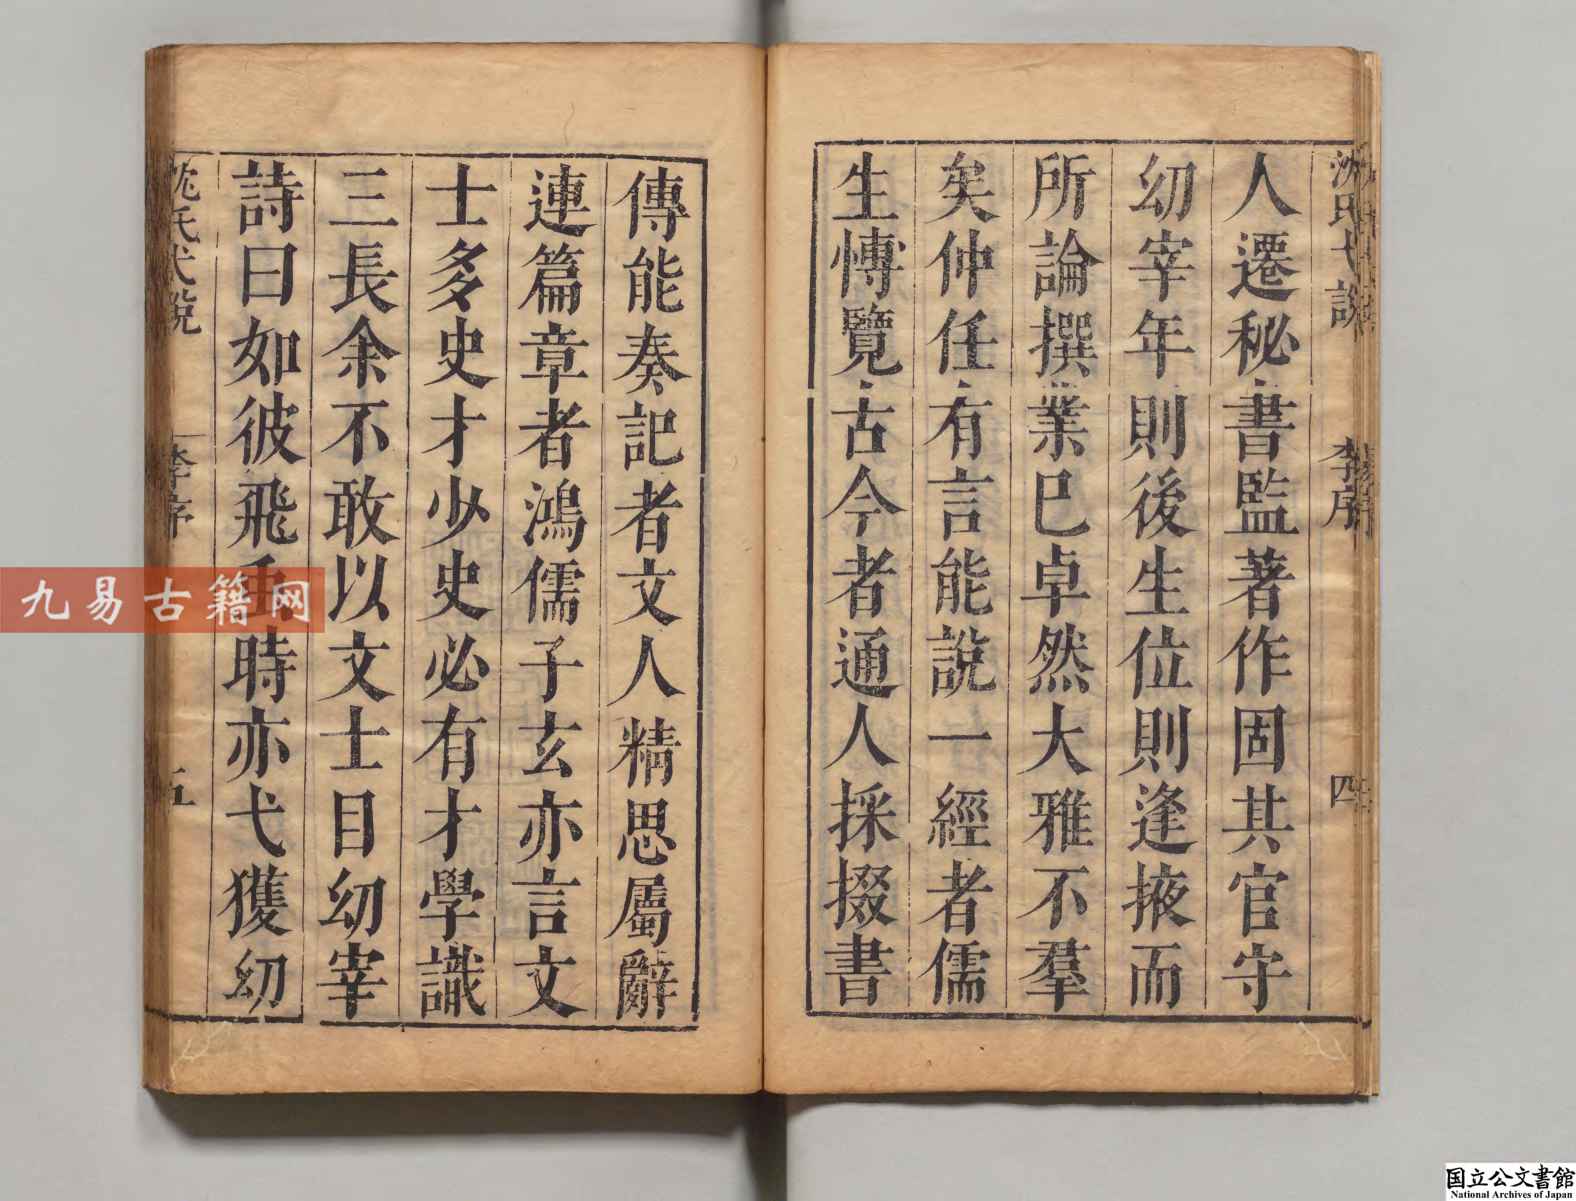 人遷秘書監著作固其官守
幼宰年則後生位則逢掖而
所論撰業已卓然大雅不羣
矣仲任有言能說一經者儒
生愽覽古今者通人採掇書
傳能奏記者文人精思屬辭
連篇章者鴻儒子玄亦言文
士多史才少史必有才學識
三長余不敢以文士目幼宰
詩曰如彼飛蟲時亦弋獲幼
沈氏弋說
李序
四
沈氏弋說
李序
五
九易古籍网
国立公文書館
National Archives of Japan